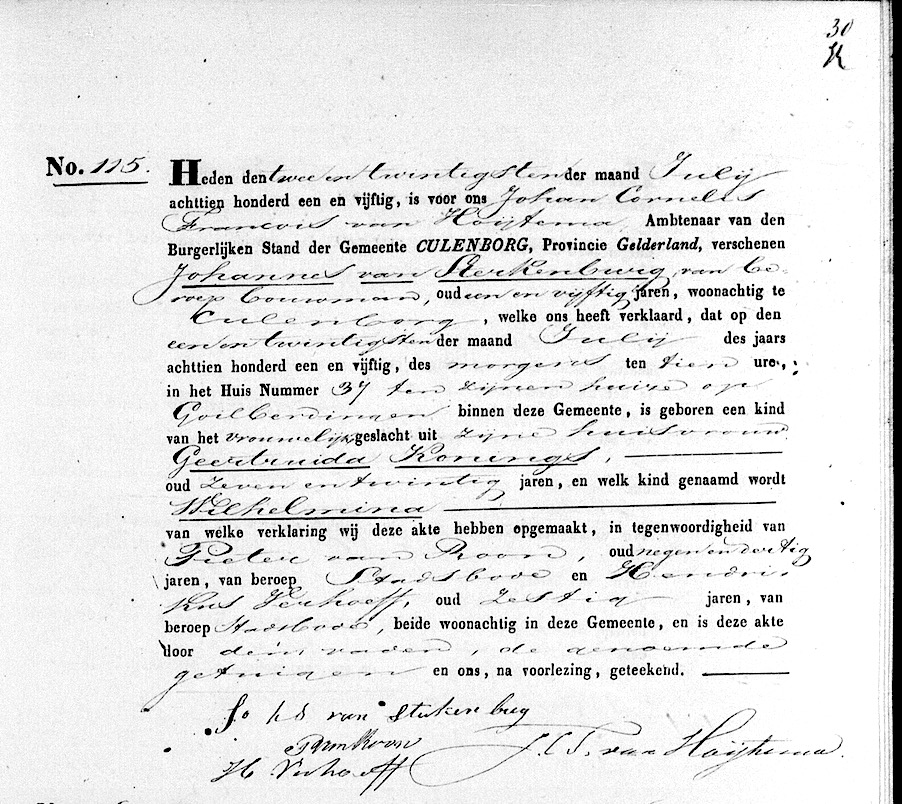 30
No. 115.
Heden den twee en twintigsten der maand Julij
achttien honderd een en vijftig, is voor ons Johan Cornelis
Francois van Hoijtema, Ambtenaar van den
Burgerlijken Stand der Gemeente CULENBORG, Provincie Gelderland, verschenen
Johannes van Sterkenburg, van be-
roep bouwman, oud een en vijftig jaren, woonachtig te
Culenborg, welke ons heeft verklaard, dat op den
een en twintigsten der maand Julij des jaars
achttien honderd een en vijftig, des morgens ten tien ure,
in het Huis Nummer 37 ten zijnen huize op
Goilberdingen binnen deze Gemeente, is geboren een kind
van het vrouwelijk geslacht uit zijne huisvrouw
Geertruida Konings,
oud zeven en twintig jaren, en welk kind genaamd wordt
Wilhelmina
van welke verklaring wij deze akte hebben opgemaakt, in tegenwoordigheid van
Pieter van Roon, oud negen en dertig
jaren, van beroep Stadsbode en Hendri-
kus Verhoeff, oud zestig jaren, van
beroep Stadsbode, beide woonachtig in deze Gemeente, en is deze akte
door den vader, de genoemde
getuigen en ons, na voorlezing, geteekend.
van Sterkenburg
H Verhoeff J.C.F. van Hoijtema